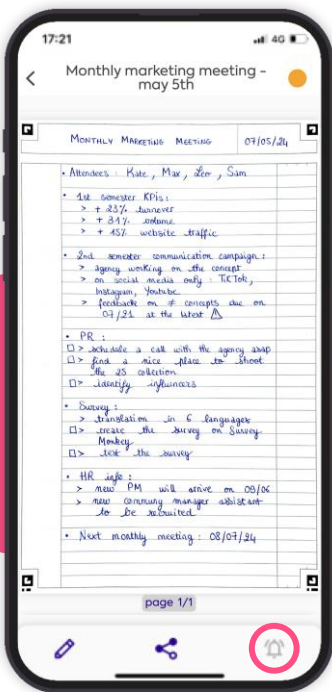 17:21
4G
Monthly marketing meeting -
may 5th
MONTHLY MARKETING MEETING 07/05/24
• Attendees : Kate, Max, Leo, Sam
• 1st semester KPIs:
> + 23% turnover
> + 31% volume
> + 15% website traffic
• 2nd semester communication campaign :
> agency working on the concept
> on social media only : TikTok,
Instagram, Youtube
> feedback on ≠ concepts due on
07/21 at the latest ⚠
• PR :
□> schedule a call with the agency asap
□> find a nice place to shoot
the 2S collection
□> identify influencers
• Survey :
> translation in 6 languages
□> create the survey on Survey
Monkey
□> test the survey
• HR info :
> new PM will arrive on 09/06
> new communy manager assistant
to be recruited
• Next monthly meeting : 08/07/24
page 1/1